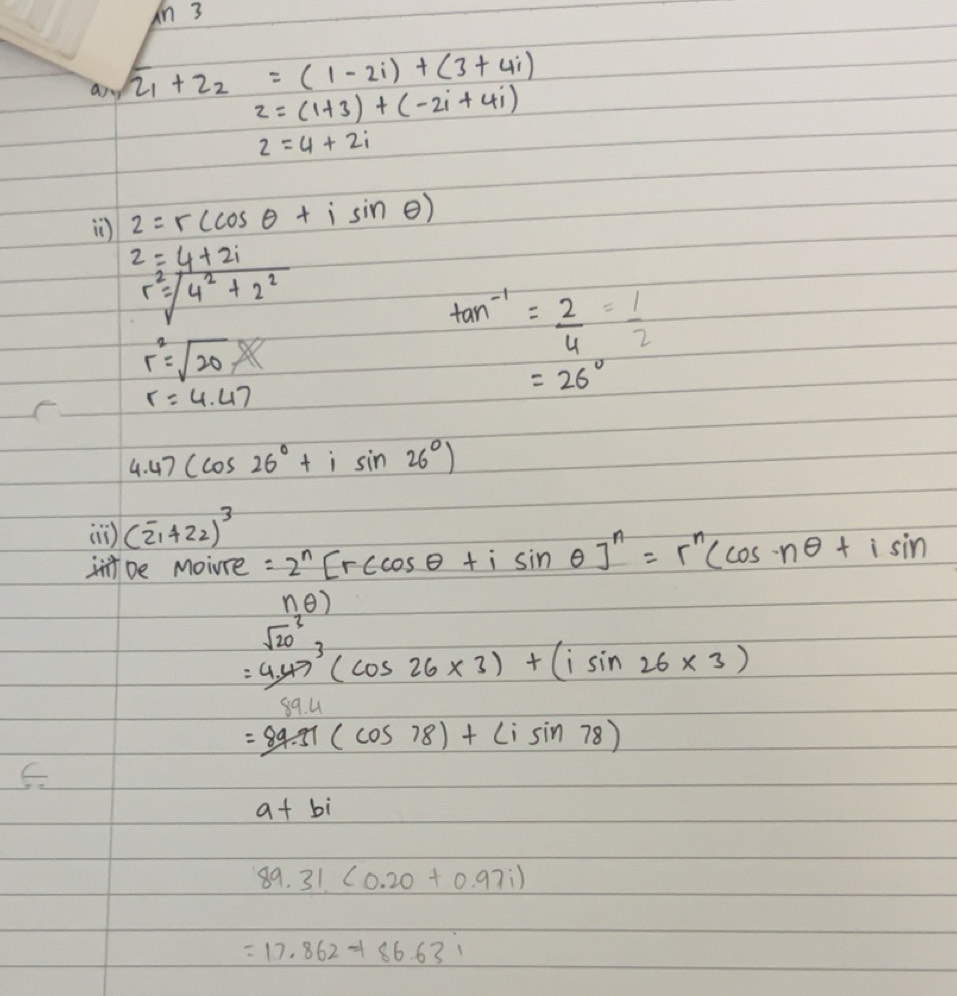 n 3
a) z̄₁ + z₂ = (1 - 2i) + (3 + 4i)
z = (1+3) + (-2i + 4i)
z = 4 + 2i
ii) z = r (cos θ + i sin θ)
z = 4 + 2i
r² = √4² + 2²
tan⁻¹ = 2/4 = 1/2
r² = √20
= 26°
r = 4.47
4.47 (cos 26° + i sin 26°)
iii) (z̄₁ + z₂)³
De Moivre = zⁿ [r (cos θ + i sin θ]ⁿ = rⁿ (cos nθ + i sin
nθ)
√20³
= 4.47³ (cos 26 × 3) + (i sin 26 × 3)
89.4
= 89.31 (cos 78) + (i sin 78)
a + bi
89.31 (0.20 + 0.97i)
= 17.862 + 86.63 i